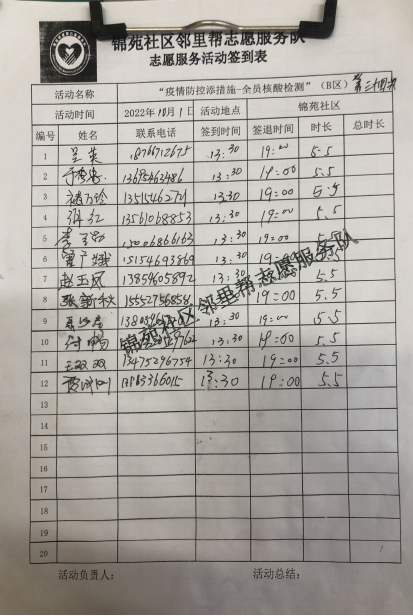 锦苑社区邻里帮志愿服务队
志愿服务活动签到表
活动名称 “疫情防控添措施-全员核酸检测”（B区）
活动时间 2022年10月1日 活动地点 锦苑社区
编号 姓名 联系电话 签到时间 签退时间 时长 总时长
1 吴英 18766712675 13:30 19:00 5.5
2 13685463486 13:30 19:00 5.5
3 13515462721 13:30 19:00 5.5
4 13561068853 13:30 19:00 5.5
5 13:30 19:00 5.5
6 15154693869 13:30 19:00 5.5
7 赵玉凤 13854605892 13:30 19:00 5.5
8 15552756858 13:30 19:00 5.5
9 13:30 19:00 5.5
10 13:30 19:00 5.5
11 王双双 13475296754 13:30 19:00 5.5
12 13:30 19:00 5.5
13
14
15
16
17
18
19
20
活动负责人： 活动总结：
锦苑社区邻里帮志愿服务队